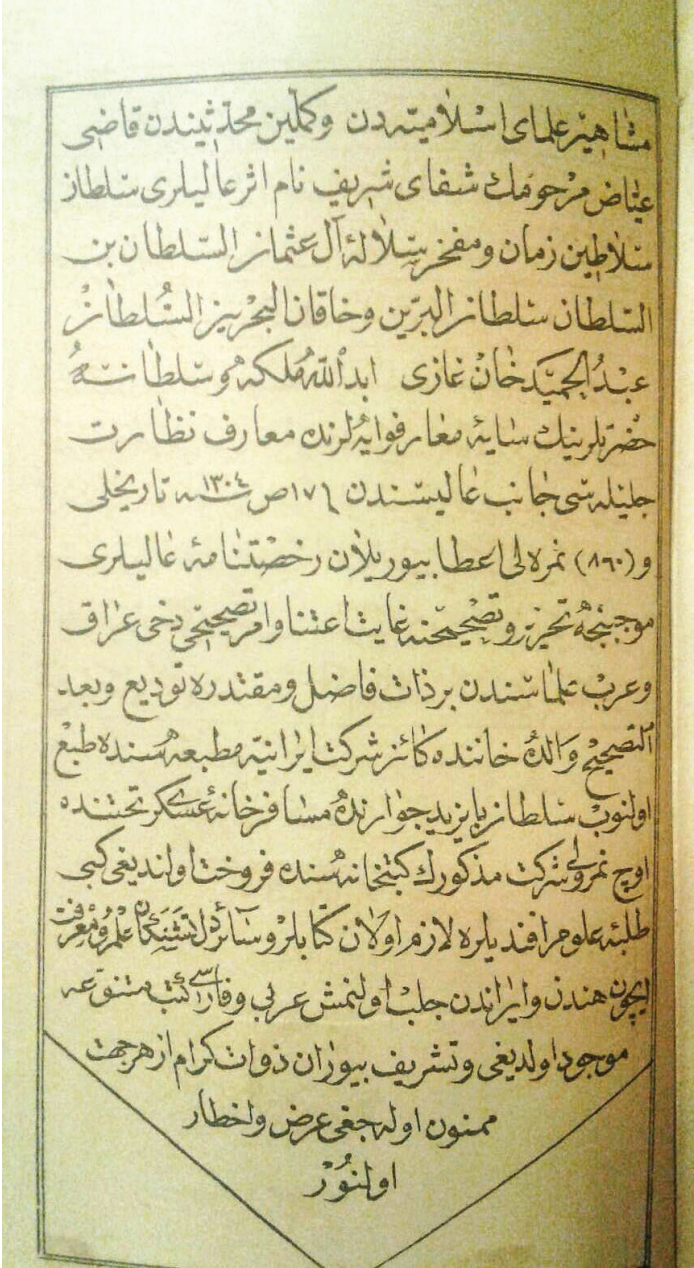 مشاهیر علمای اسلامیه‌دن وکملین محدثیندن قاضی
عیاض مرحومك شفای شریف نام اثر عالیلری سلطان
سلاطین زمان ومفخر سلالهٔ آل عثمان السلطان بن
السلطان سلطان البرین وخاقان البحرین السلطان
عبد الحمید خان غازی ابد الله ملکه وسلطانته
حضرتلرینك سایهٔ معارفوایه‌لرنده معارف نظارت
جلیله‌سی جانب عالیسندن ١٧ ص سنه ١٣٠٤ تاریخلی
و (٨٦٠) نمره‌لی اعطا بیوریلان رخصتنامهٔ عالیلری
موجبنجه تحریر وتصحیحنه غایت اعتنا وامر تصحیحی دخی عراق
وعرب علماسندن بر ذات فاضل ومقتدره تودیع وبعد
التصحیح والده خاننده کائن شرکت ایرانیه مطبعه‌سنده طبع
اولنوب سلطان بایزید جوارنده مسافرخانهٔ عسکری تحتنده
اوچ نمرولی شرکت مذکورك کتبخانه‌سنده فروخت اولندیغی کبی
طلبهٔ علوم افندیلره لازم اولان کتابلر وسائر دل تشنکان علم ومعرفت
ایچون هندن وایراندن جلب اولنمش عربی وفارسی کتب متنوعه
موجود اولدیغی وتشریف بیوران ذوات کرام از هر جهت
ممنون اوله‌جغی عرض واخطار
اولنور